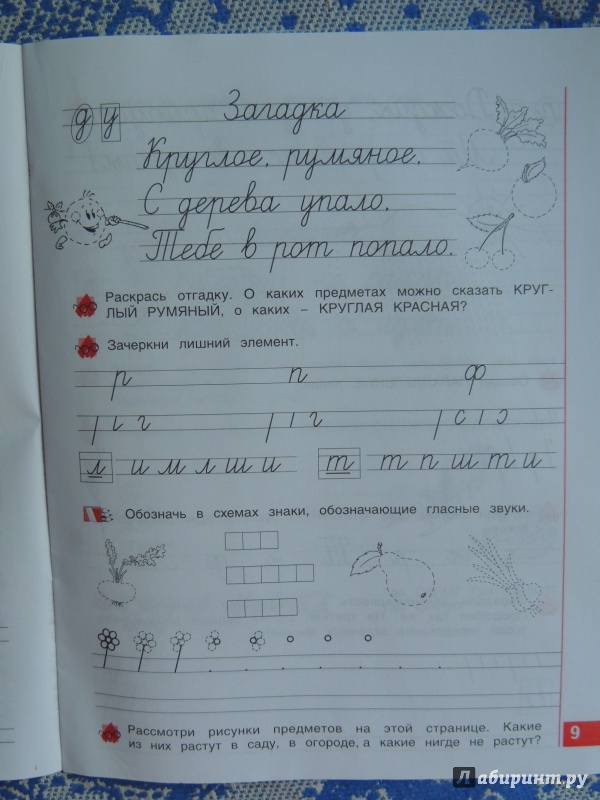 д у Загадка
Круглое, румяное,
С дерева упало,
Тебе в рот попало.
Раскрась отгадку. О каких предметах можно сказать КРУГ-
ЛЫЙ РУМЯНЫЙ, о каких – КРУГЛАЯ КРАСНАЯ?
Зачеркни лишний элемент.
р п ф
л и м л ш и т т п ш т и
Обозначь в схемах знаки, обозначающие гласные звуки.
Рассмотри рисунки предметов на этой странице. Какие
из них растут в саду, в огороде, а какие нигде не растут?
9
Лабиринт.ру